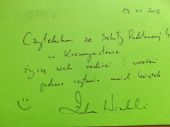 Czytelnikom ze Szkoły Podstawowej
w Krasnymstawie
życzę wielu radości i wrażeń
podczas czytania moich książek